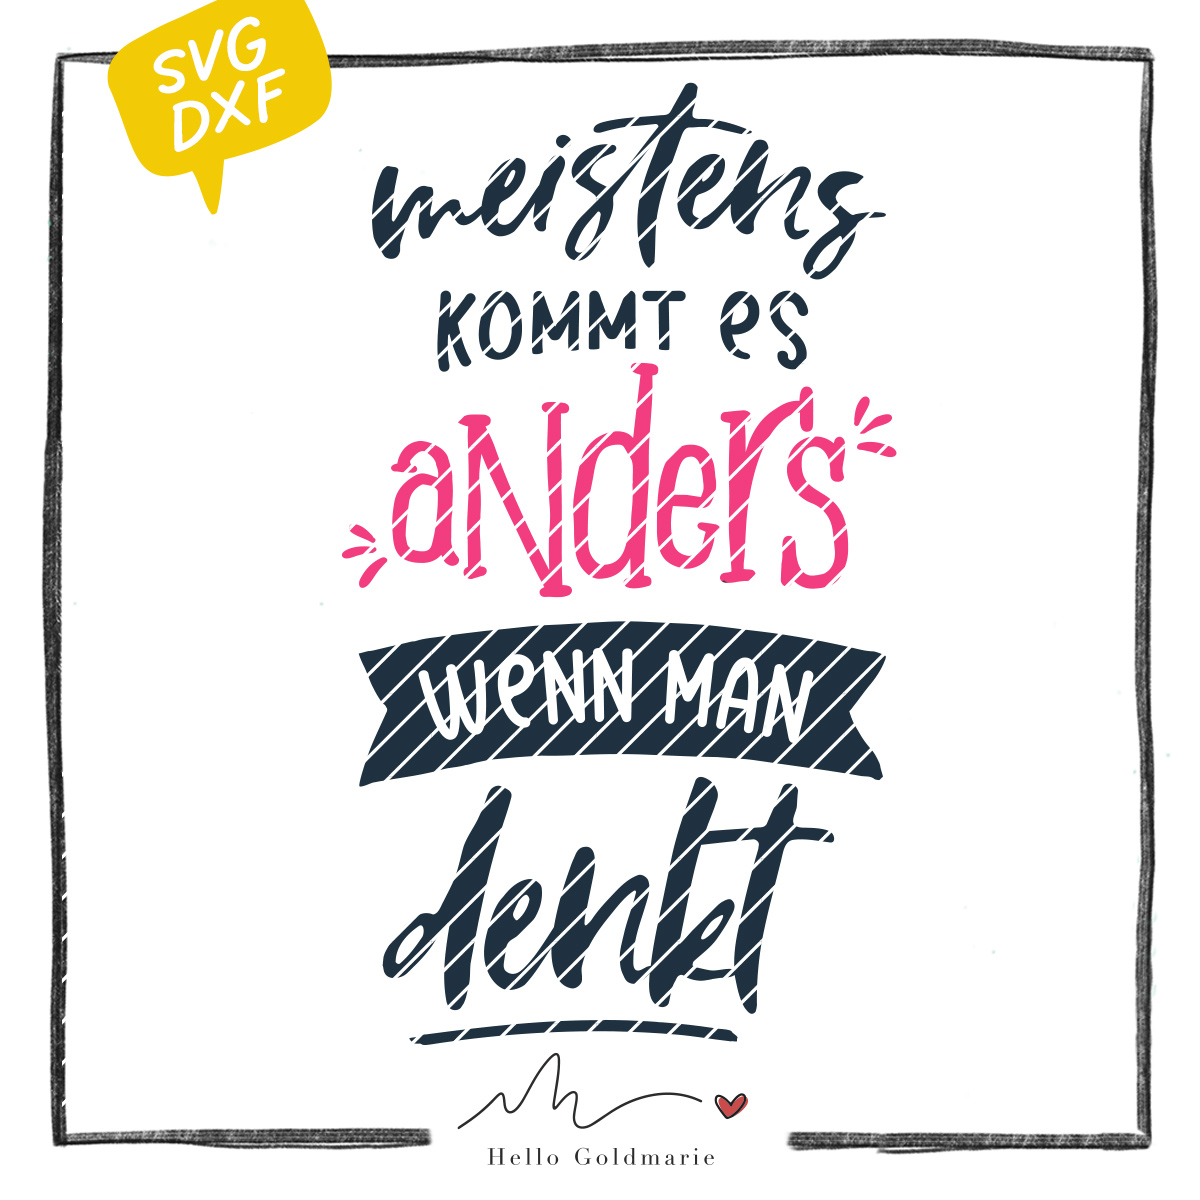 SVG
DXF
meistens
KOMMT es
aNders
weNN MAN
denkt
Hello Goldmarie